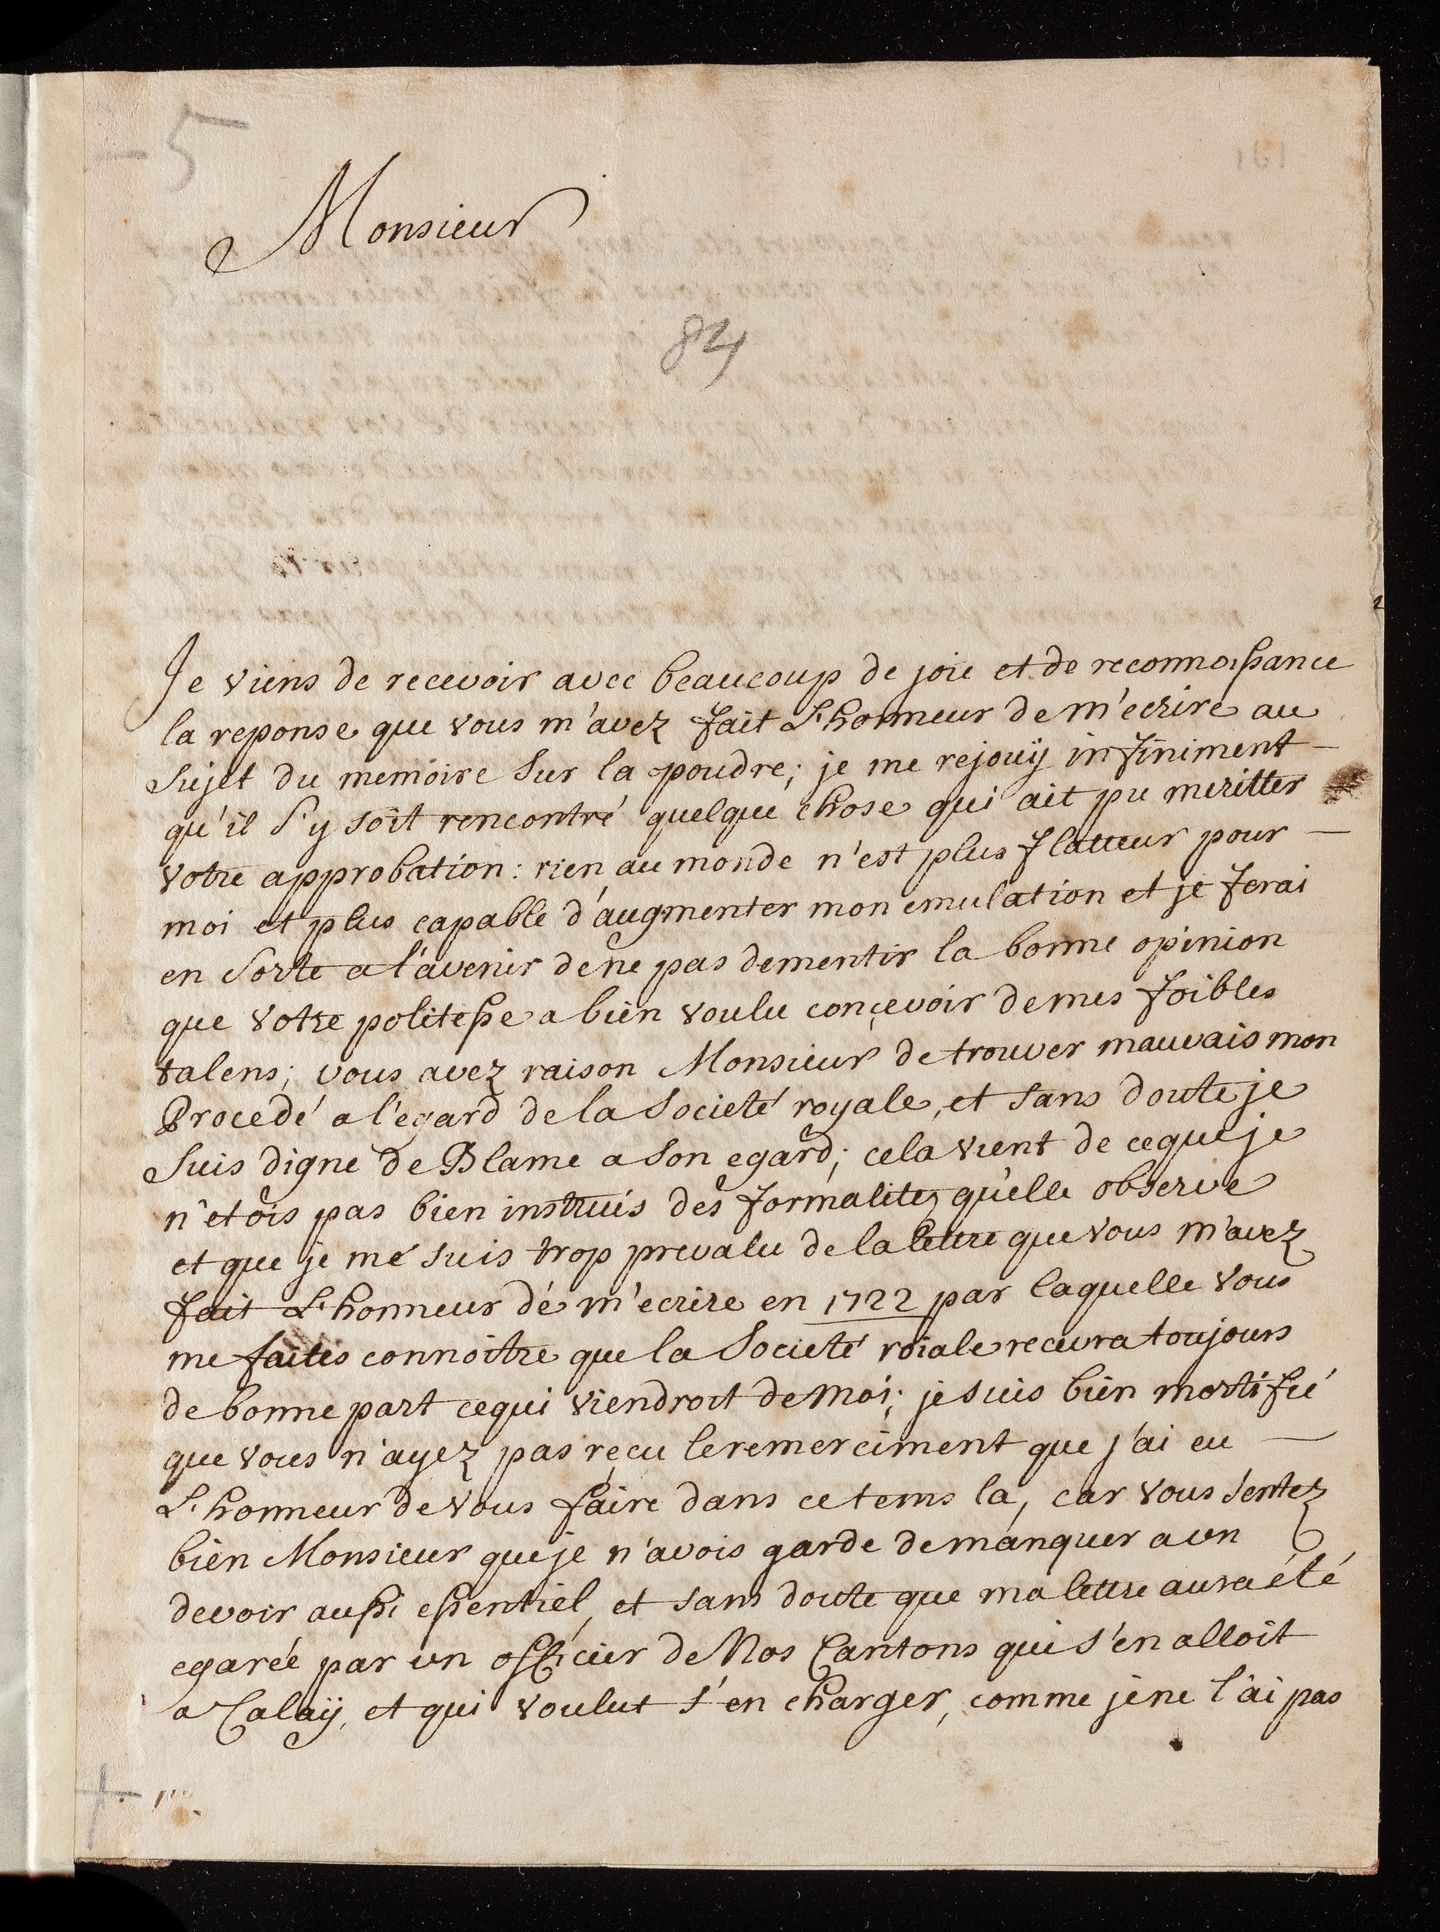 5
Monsieur
84
Je viens de recevoir avec beaucoup de joie et de reconnoissance
la reponse que vous m'avez fait L'honneur de m'ecrire au
sujet du memoire sur la poudre; je me rejouÿ infiniment
qu'il s'y soit rencontré quelque chose qui ait pu meritter
votre approbation: rien au monde n'est plus flatteur pour
moi et plus capable d'augmenter mon emulation et je ferai
en sorte a l'avenir de ne pas dementir la bonne opinion
que votre politesse a bien voulu conçevoir de mes foibles
talens; vous avez raison Monsieur de trouver mauvais mon
Procedé a l'egard de la Societé royale, et sans doute je
suis digne de Blame a son egard; cela vient de ce que je
n'etois pas bien instruis des formalitez qu'elle observe
et que je me suis trop prevalu de la lettre que vous m'avez
fait L'honneur de m'ecrire en 1722 par laquelle vous
me faites connoitre que la Societé roiale recevra toujours
de bonne part ce qui viendroit de moi; je suis bien mortifié
que vous n'ayez pas reçu le remerciment que j'ai eu
L'honneur de vous faire dans ce tems la, car vous sentez
bien Monsieur que je n'avois garde de manquer a un
devoir aussi essentiel, et sans doute que ma lettre aura été
egarée par un officier de Nos Cantons qui s'en alloit
a Calaÿ, et qui voulut s'en charger, comme je ne l'ai pas